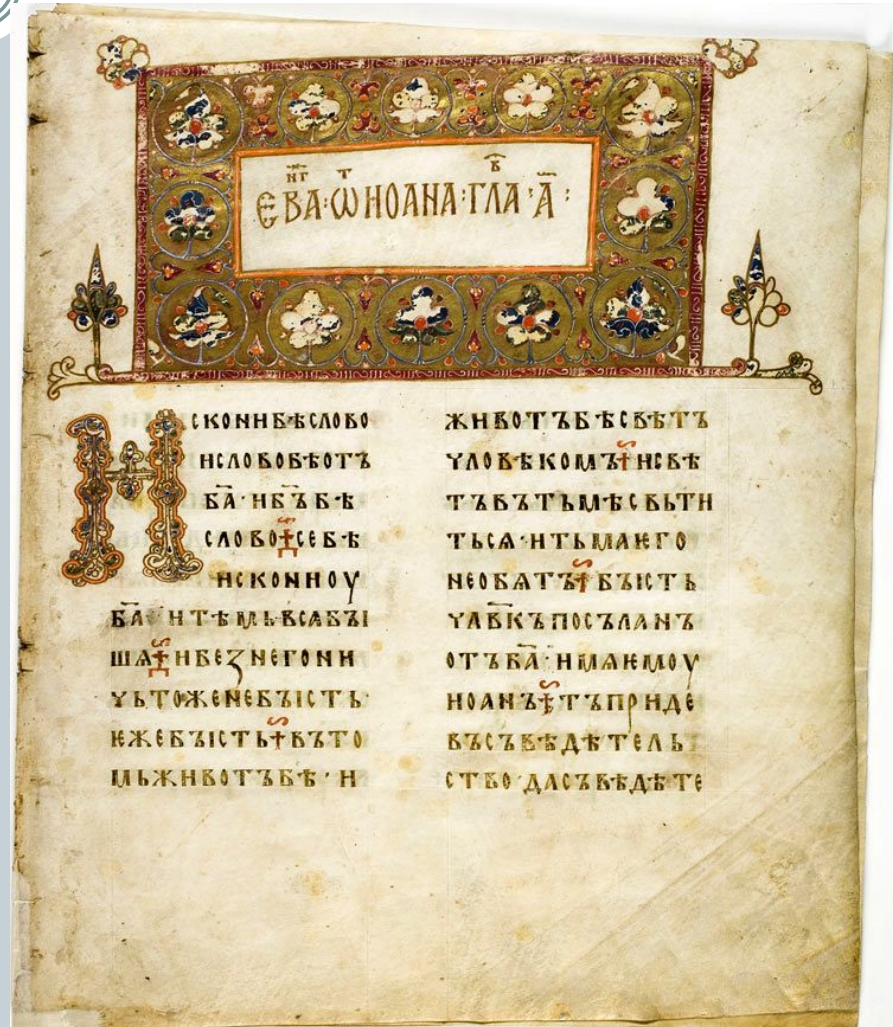 ЕВАⷩ҇ⷢ҇ · ѿ ИОАНА : ГЛАⷡ҇ · А҃ :
Искони бѣ слово
и слово бѣ отъ
б҃а · и б҃ъ бѣ
слово ⁜ се бѣ
искони оу
б҃а · и тѣмь всѧ бъı
шѧ ⁜ и безнего ни
чьтоже не бъıсть ·
ѥже бъıсть ⁜ въ то
мь животъ бѣ · и
животъ бѣ свѣтъ
чловѣкомъ ⁜ и свѣ
тъ въ тьмѣ свьти
тьсѧ · и тьма ѥго
не обѧтъ ⁜ бъıсть
члв҃къ посъланъ
отъ б҃а · имѧ ѥмоу
иоанъ ⁜ тъ приде
въ съвѣдѣтель
ство · да съвѣдѣте